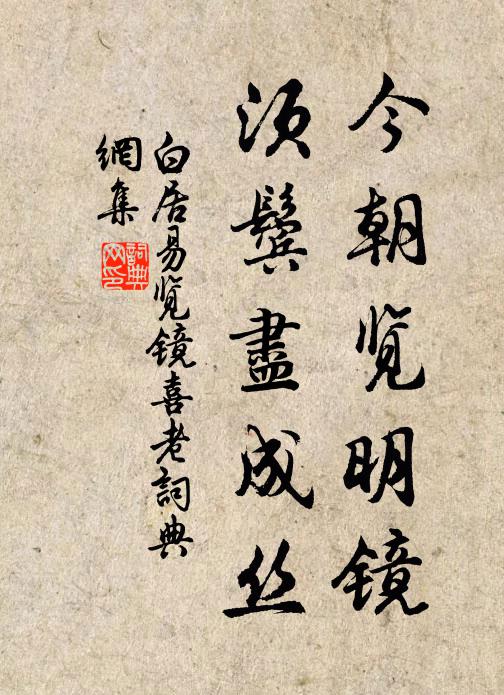 今朝览明镜
须鬓盡成丝
白居易览镜喜老詞典
網集
詞典
网印